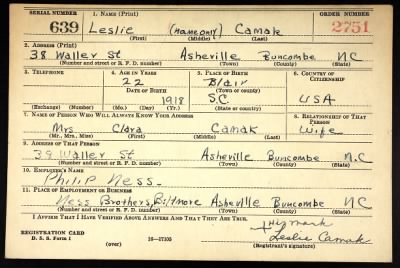 SERIAL NUMBER 1. NAME (Print) ORDER NUMBER
639 Leslie (NAME ONLY) Camak 2751
(First) (Middle) (Last)
2. ADDRESS (Print)
38 Waller St Asheville Buncombe NC
(Number and street or R. F. D. number) (Town) (County) (State)
3. TELEPHONE 4. AGE IN YEARS 5. PLACE OF BIRTH 6. COUNTRY OF CITIZENSHIP
22 Blair
DATE OF BIRTH (Town or county)
1918 S.C. USA
(Exchange) (Number) (Mo.) (Day) (Yr.) (State or country)
7. NAME OF PERSON WHO WILL ALWAYS KNOW YOUR ADDRESS 8. RELATIONSHIP OF THAT PERSON
Mrs Clara Camak Wife
(Mr., Mrs., Miss) (First) (Middle) (Last)
9. ADDRESS OF THAT PERSON
39 Waller St Asheville Buncombe N.C
(Number and street or R. F. D. number) (Town) (County) (State)
10. EMPLOYER'S NAME
Philip Ness.
11. PLACE OF EMPLOYMENT OR BUSINESS
Ness Brothers, Biltmore Asheville Buncombe NC
(Number and street or R. F. D. number) (Town) (County) (State)
I AFFIRM THAT I HAVE VERIFIED ABOVE ANSWERS AND THAT THEY ARE TRUE.
His mark
REGISTRATION CARD Leslie Camak
D. S. S. Form 1 (over) 16—17105 (Registrant's signature)